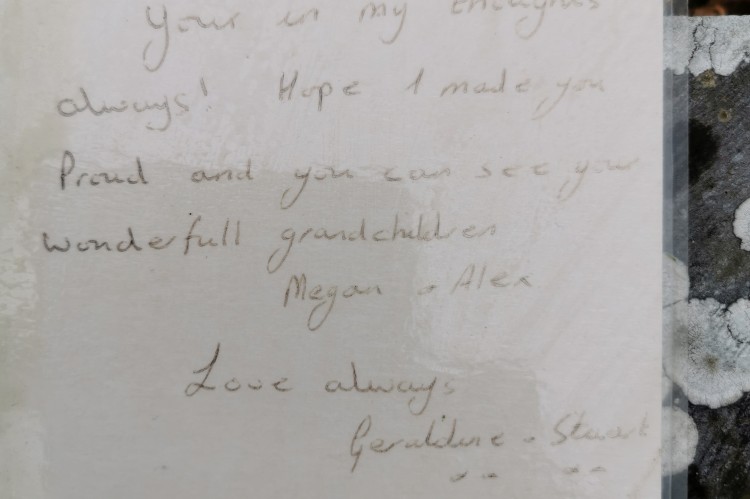 Your in my thoughts
always! Hope I made you
Proud and you can see your
wonderfull grandchildren
Megan & Alex
Love always
Geraldine & Stuart